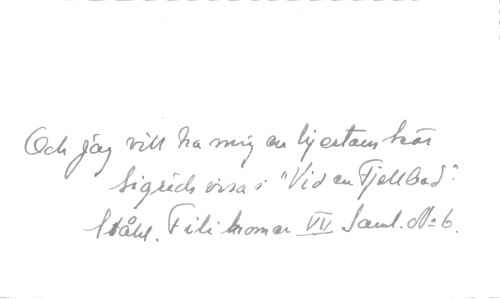 Och jag vill ha mig en hjertans kär
Sigrids visa i "Vid en Fjellbäck".
Ståhl. Filikromer VII Saml. No 6.